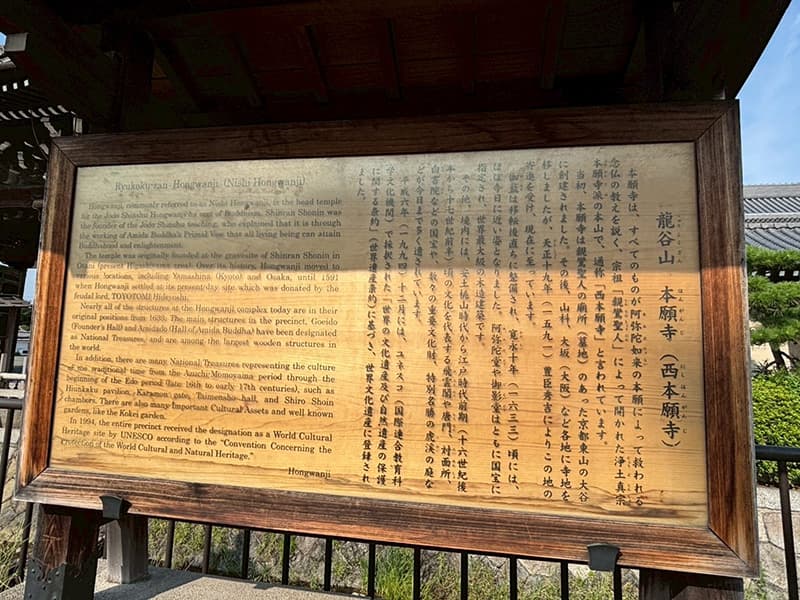 龍谷山 本願寺（西本願寺）
りゅうこくざん ほんがんじ にしほんがんじ
本願寺は、すべてのものが阿弥陀如来の本願によって救われる
念仏の教えを説く、宗祖「親鸞聖人」によって開かれた浄土真宗
本願寺派の本山で、通称「西本願寺」と言われています。
当初、本願寺は親鸞聖人の廟所（墓地）のあった京都東山の大谷
に創建されました。その後、山科、大坂（大阪）など各地に寺地を
移しましたが、天正十九年（一五九一）豊臣秀吉によりこの地の
寄進を受け、現在に至っています。
伽藍は移転後直ちに整備され、寛永十年（一六三三）頃には、
ほぼ今日に近い姿となりました。阿弥陀堂や御影堂はともに国宝に
指定され、世界最大級の木造建築です。
その他、境内には、安土桃山時代から江戸時代前期（十六世紀後
半から十七世紀前半）頃の文化を代表する飛雲閣や唐門、対面所、
白書院などの国宝や、数々の重要文化財、特別名勝の虎渓の庭な
どが今日まで多く遺されています。
平成六年（一九九四）十二月には、ユネスコ（国際連合教育科
学文化機関）で採択された「世界の文化遺産及び自然遺産の保護
に関する条約」（世界遺産条約）に基づき、世界文化遺産に登録され
ました。
Ryukoku-zan Hongwanji (Nishi Hongwanji)
Hongwanji, commonly referred to as Nishi Hongwanji, is the head temple
for the Jodo Shinshu Hongwanji-ha sect of Buddhism. Shinran Shonin was
the founder of the Jodo Shinshu teaching, who explained that it is through
the working of Amida Buddha's Primal Vow that all living being can attain
Buddhahood and enlightenment.
The temple was originally founded at the gravesite of Shinran Shonin in
Otani (present Higashiyama area). Over its history, Hongwanji moved to
various locations, including Yamashina (Kyoto) and Osaka, until 1591
when Hongwanji settled at its present-day site which was donated by the
feudal lord, TOYOTOMI Hideyoshi.
Nearly all of the structures at the Hongwanji complex today are in their
original positions from 1633. The main structures in the precinct, Goeido
(Founder's Hall) and Amidado (Hall of Amida Buddha) have been designated
as National Treasures, and are among the largest wooden structures in
the world.
In addition, there are many National Treasures representing the culture
of the traditional time from the Azuchi-Momoyama period through the
beginning of the Edo period (late 16th to early 17th centuries), such as
Hiunkaku pavilion, Karamon gate, Taimensho hall, and Shiro Shoin
chambers. There are also many Important Cultural Assets and well known
gardens, like the Kokei garden.
In 1994, the entire precinct received the designation as a World Cultural
Heritage site by UNESCO according to the "Convention Concerning the
Protection of the World Cultural and Natural Heritage."
Hongwanji